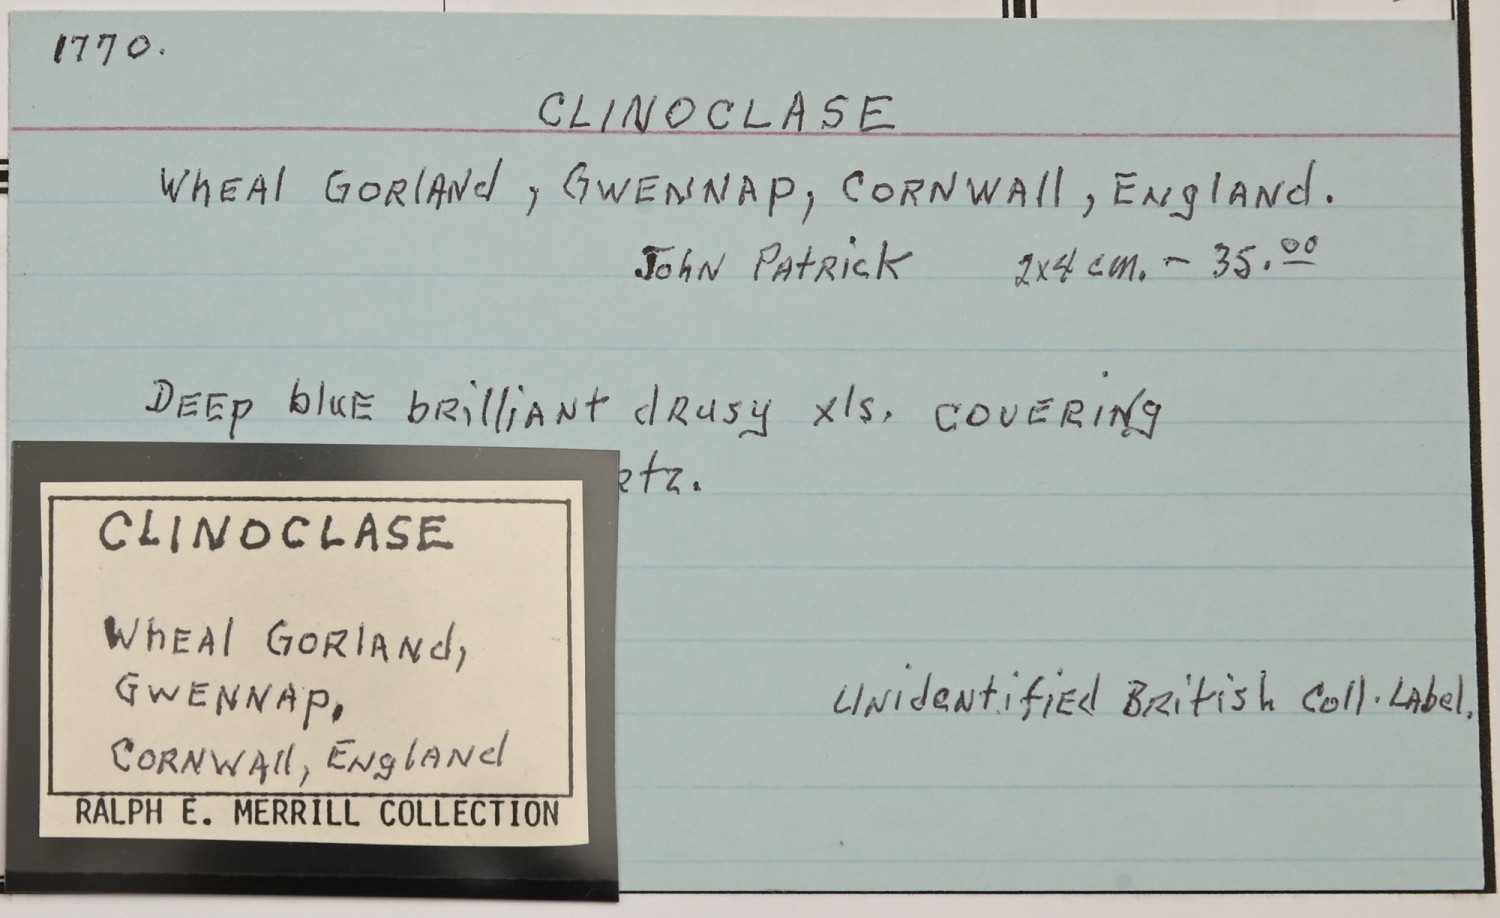 1770.
CLINOCLASE
WhEAl GORlANd, GWENNAP, CORNWAll, ENglANd.
JohN PATRicK 2x4 cm. - 35.00
DEEp bluE bRilliANt dRusy xls. COVERiNg
UNidENtifiEd BRitish Coll. LAbel.
CLINOCLASE
WhEAl GORlANd,
GWENNAP,
CORNWAll, ENglANd
RALPH E. MERRILL COLLECTION